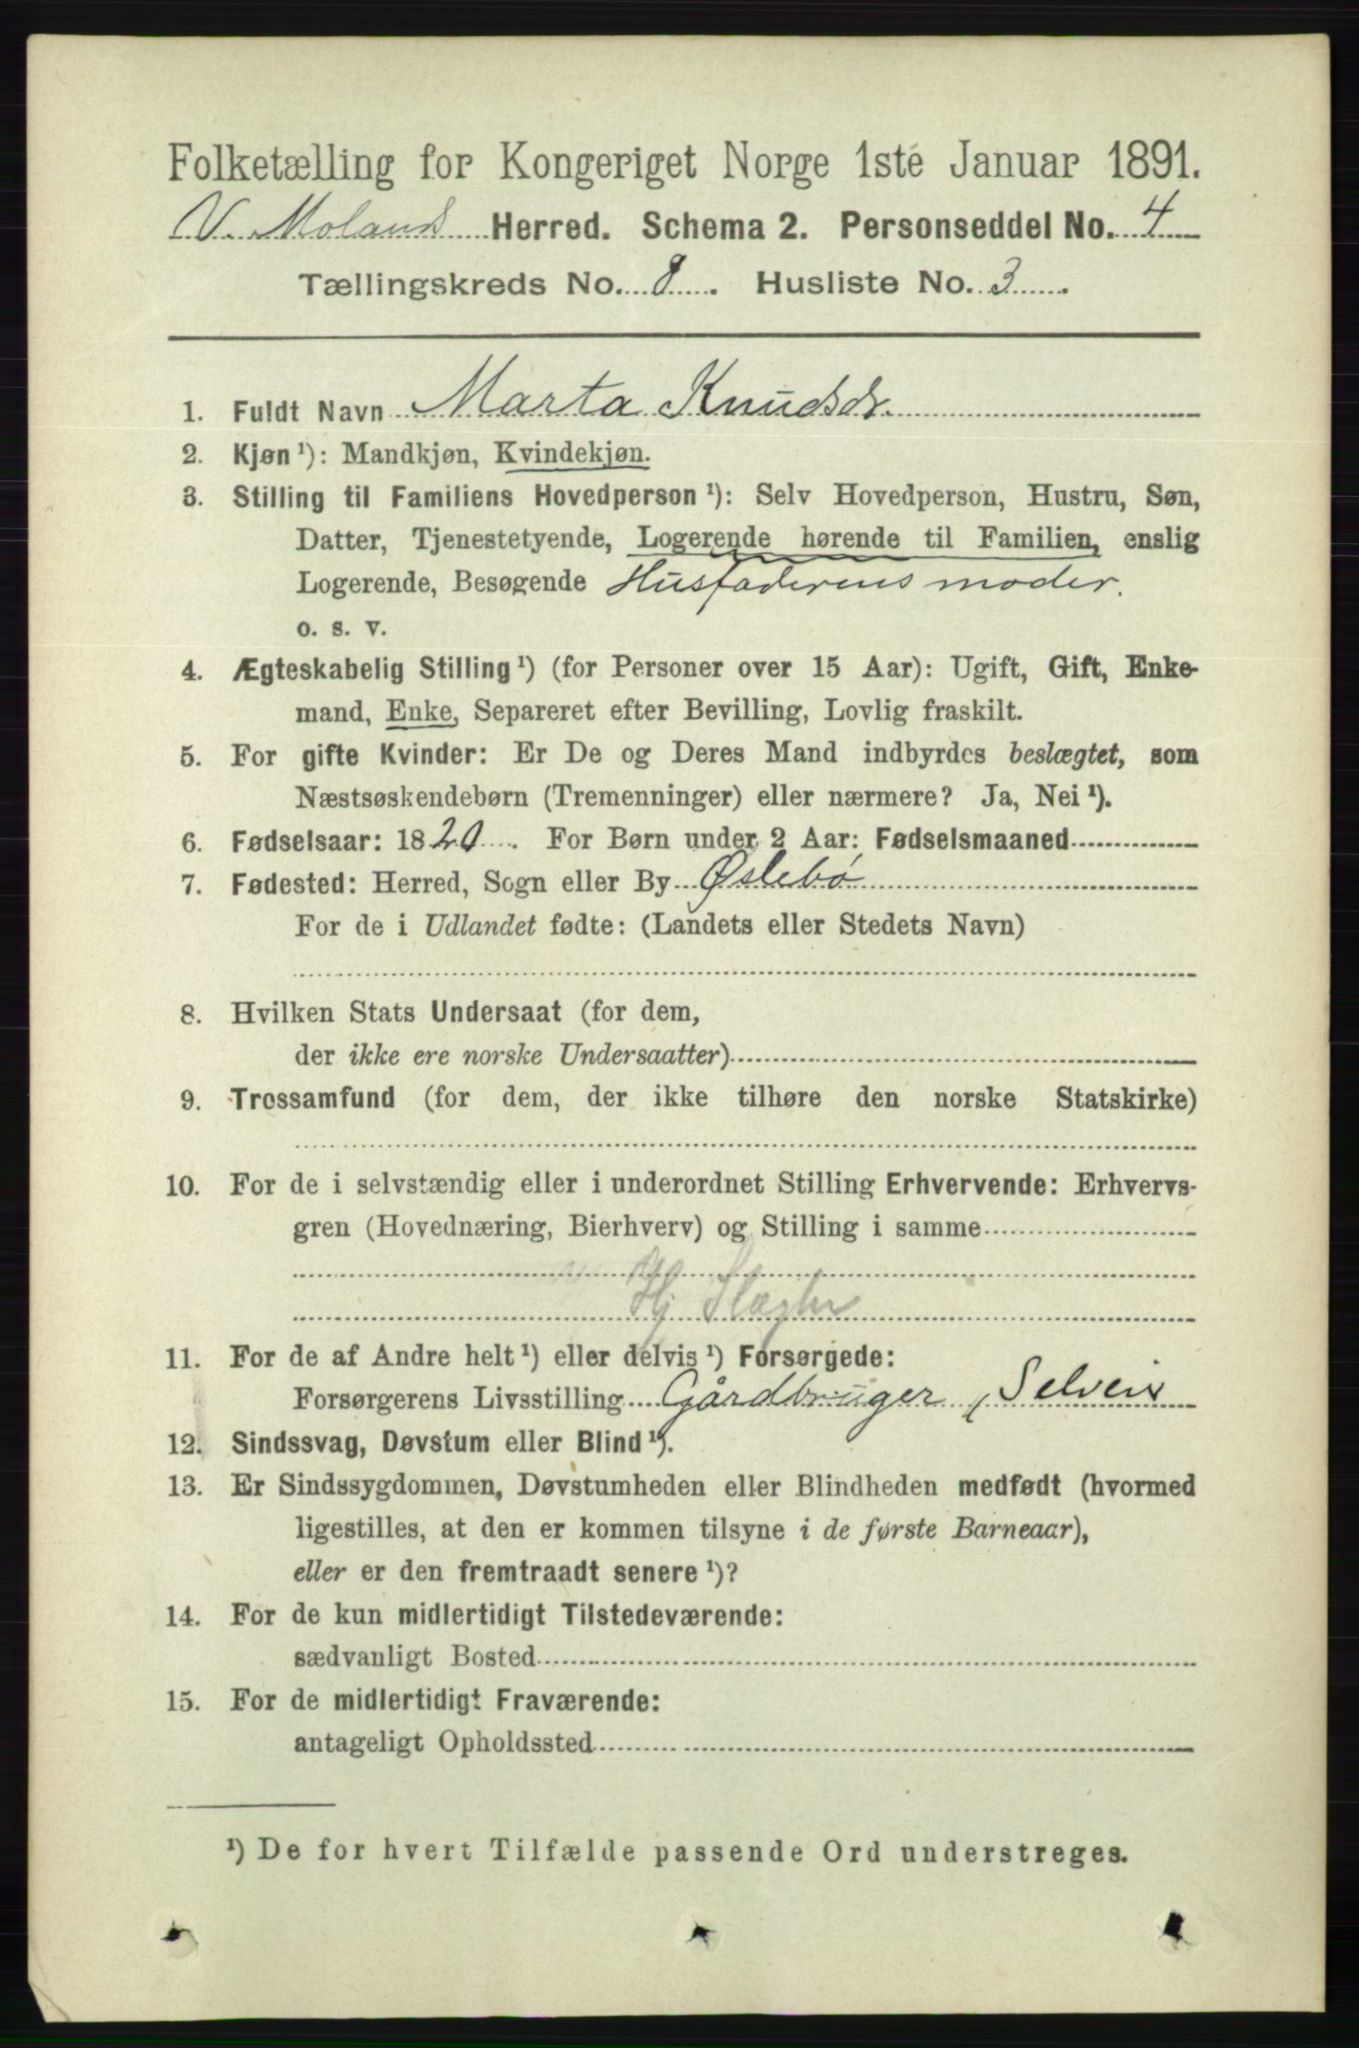 Folketælling for Kongeriget Norge 1ste Januar 1891.
V. Molands Herred. Schema 2. Personseddel No. 4
Tællingskreds No. 8. Husliste No. 3.
1. Fuldt Navn Marta Knudsdr.
2. Kjøn ¹): Mandkjøn, Kvindekjøn.
3. Stilling til Familiens Hovedperson ¹): Selv Hovedperson, Hustru, Søn,
Datter, Tjenestetyende, Logerende hørende til Familien, enslig
Logerende, Besøgende Husfaderens moder.
o. s. v.
4. Ægteskabelig Stilling ¹) (for Personer over 15 Aar): Ugift, Gift, Enke-
mand, Enke, Separeret efter Bevilling, Lovlig fraskilt.
5. For gifte Kvinder: Er De og Deres Mand indbyrdes beslægtet, som
Næstsøskendebørn (Tremenninger) eller nærmere? Ja, Nei ¹).
6. Fødselsaar: 1820. For Børn under 2 Aar: Fødselsmaaned
7. Fødested: Herred, Sogn eller By Øslebø
For de i Udlandet fødte: (Landets eller Stedets Navn)
8. Hvilken Stats Undersaat (for dem,
der ikke ere norske Undersaatter)
9. Trossamfund (for dem, der ikke tilhøre den norske Statskirke)
10. For de i selvstændig eller i underordnet Stilling Erhvervende: Erhvervs-
gren (Hovednæring, Bierhverv) og Stilling i samme
Hj Slægtn
11. For de af Andre helt ¹) eller delvis ¹) Forsørgede:
Forsørgerens Livsstilling Gårdbruger, Selveir
12. Sindssvag, Døvstum eller Blind ¹).
13. Er Sindssygdommen, Døvstumheden eller Blindheden medfødt (hvormed
ligestilles, at den er kommen tilsyne i de første Barneaar),
eller er den fremtraadt senere ¹)?
14. For de kun midlertidigt Tilstedeværende:
sædvanligt Bosted
15. For de midlertidigt Fraværende:
antageligt Opholdssted
¹) De for hvert Tilfælde passende Ord understreges.